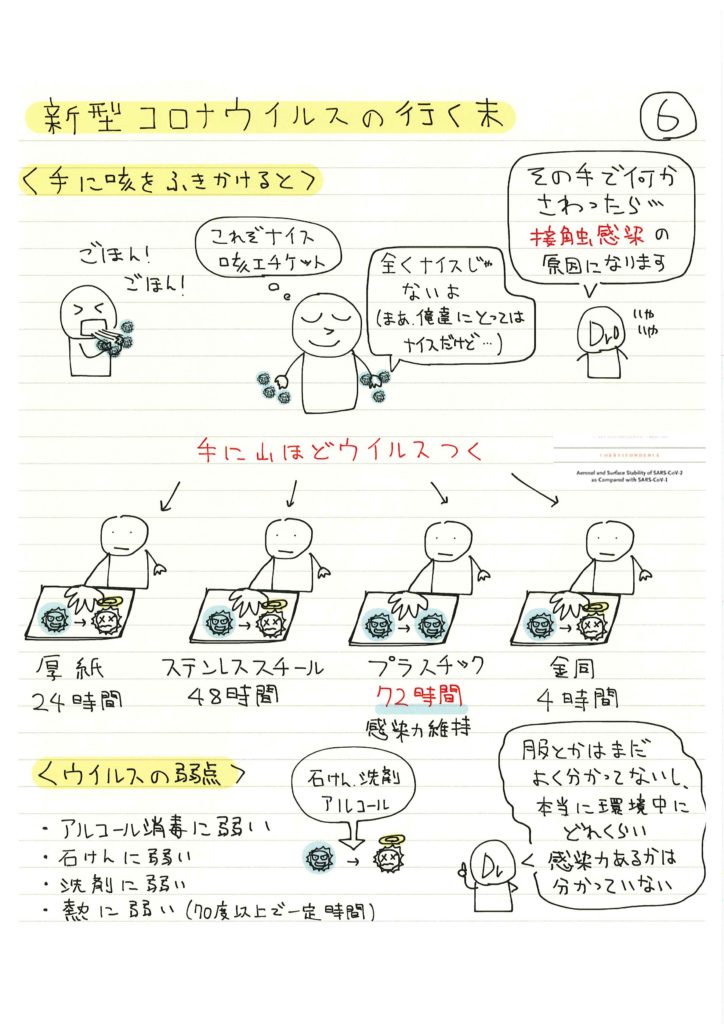 新型コロナウイルスの行く末
6
〈手に咳をふきかけると〉
ごほん!
ごほん!
これぞナイス
咳エチケット
全くナイスじゃ
ないよ
(まあ、俺達にとっては
ナイスだけど…)
その手で何か
さわったら…
接触感染の
原因になります
Dr.
いや
いや
手に山ほどウイルスつく
CORRESPONDENCE
Aerosol and Surface Stability of SARS-CoV-2
as Compared with SARS-CoV-1
厚紙
24時間
ステンレススチール
48時間
プラスチック
72時間
感染力維持
銅
4時間
〈ウイルスの弱点〉
・アルコール消毒に弱い
・石けんに弱い
・洗剤に弱い
・熱に弱い(70度以上で一定時間)
石けん、洗剤
アルコール
服とかはまだ
よく分かってないし、
本当に環境中に
どれくらい
感染力あるかは
分かっていない
Dr